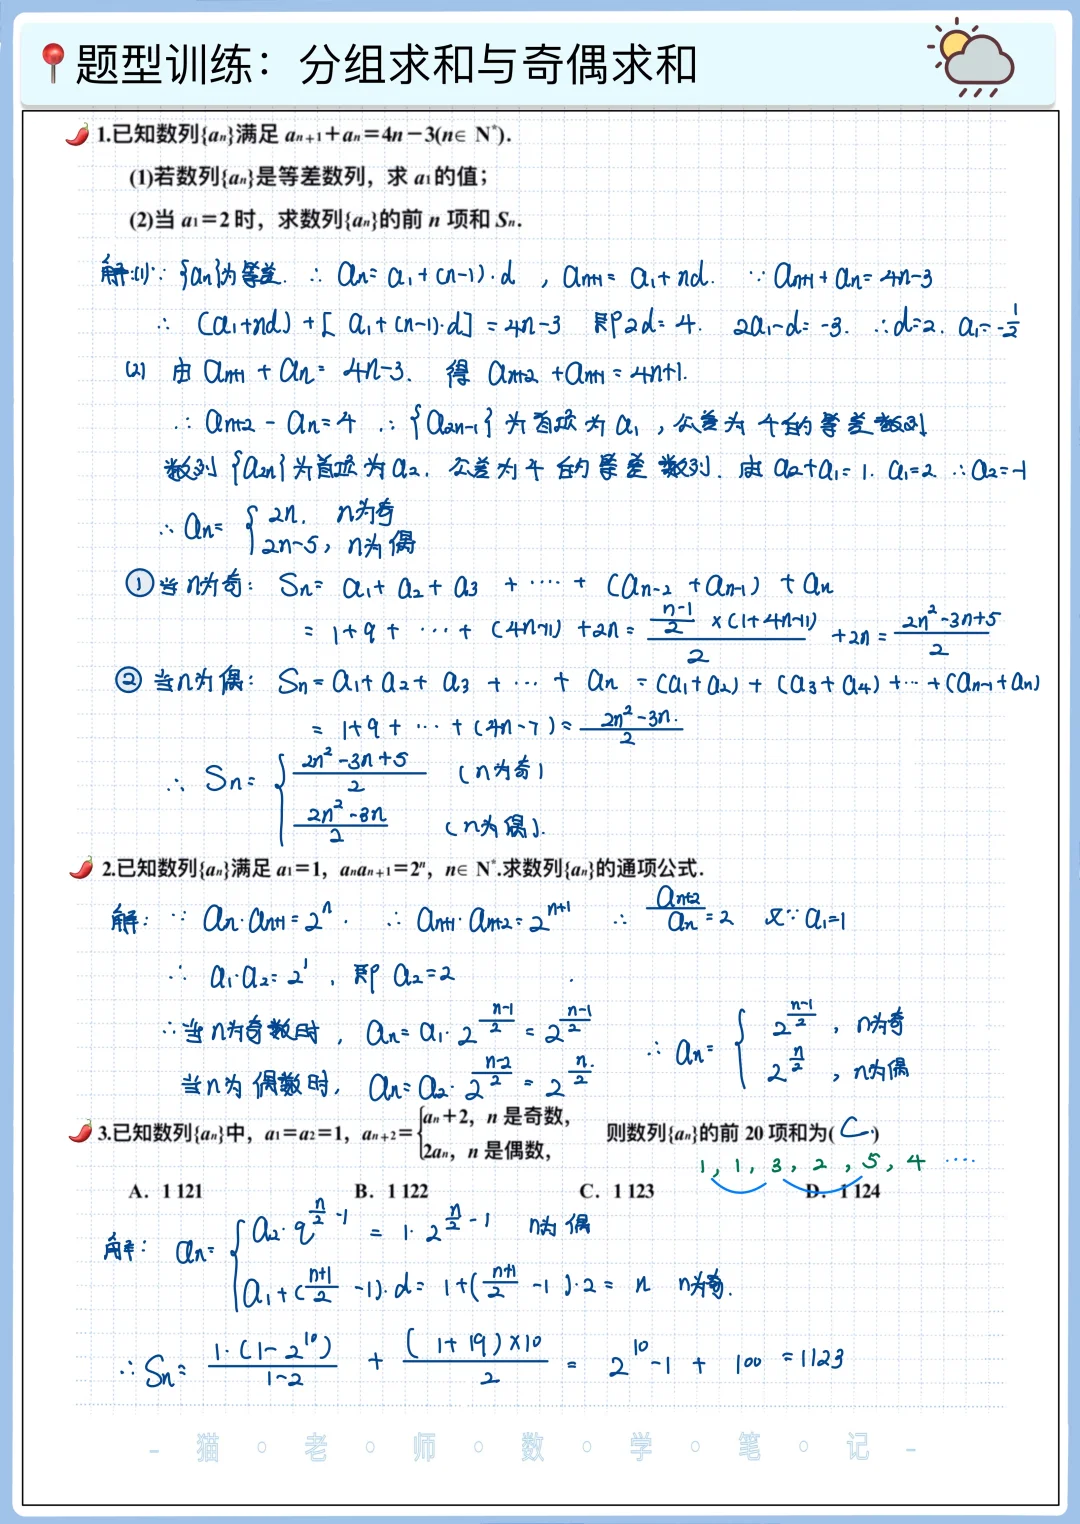 题型训练：分组求和与奇偶求和
1.已知数列{aₙ}满足 aₙ₊₁+aₙ=4n-3(n∈ N*).
(1)若数列{aₙ}是等差数列，求 a₁的值；
(2)当 a₁=2 时，求数列{aₙ}的前 n 项和 Sₙ.
解:(1)∵ {aₙ}为等差. ∴ aₙ=a₁+(n-1)·d , aₙ₊₁=a₁+nd. ∵ aₙ₊₁+aₙ=4n-3
∴ (a₁+nd)+[a₁+(n-1)·d]=4n-3 即2d=4. 2a₁-d=-3. ∴d=2. a₁=-1/2
(2) 由 aₙ₊₁+aₙ=4n-3. 得 aₙ₊₂+aₙ₊₁=4n+1.
∴ aₙ₊₂-aₙ=4 ∴ {a₂ₙ₋₁}为首项为a₁，公差为4的等差数列
数列{a₂ₙ}为首项为a₂. 公差为4的等差数列. 由 a₂+a₁=1. a₁=2 ∴a₂=-1
∴ aₙ= { 2n. n为奇
2n-5, n为偶
① 当n为奇: Sₙ= a₁+a₂+a₃ + ···· + (aₙ₋₂+aₙ₋₁)+aₙ
= 1+9+ ···+ (4n-11) +2n= (n-1)/2 ×(1+4n-11) / 2 +2n= (2n²-3n+5)/2
② 当n为偶: Sₙ=a₁+a₂+a₃+···+aₙ =(a₁+a₂)+(a₃+a₄)+···+(aₙ₋₁+aₙ)
= 1+9+ ···+(4n-7)= (2n²-3n.)/2
∴ Sₙ= { (2n²-3n+5)/2 (n为奇)
(2n²-3n)/2 (n为偶).
2.已知数列{aₙ}满足 a₁=1，aₙaₙ₊₁=2ⁿ，n∈ N*.求数列{aₙ}的通项公式.
解: ∵ aₙ·aₙ₊₁=2ⁿ. ∴ aₙ₊₁·aₙ₊₂=2ⁿ⁺¹ ∴ aₙ₊₂/aₙ=2 又∵a₁=1
∴ a₁·a₂=2¹，即 a₂=2
∴当n为奇数时, aₙ=a₁·2^((n-1)/2)=2^((n-1)/2)
当n为偶数时, aₙ=a₂·2^((n-2)/2)=2^(n/2).
∴ aₙ= { 2^((n-1)/2) , n为奇
2^(n/2) , n为偶
3.已知数列{aₙ}中，a₁=a₂=1，aₙ₊₂={ aₙ+2，n 是奇数，
2aₙ，n 是偶数， 则数列{aₙ}的前 20 项和为( C )
1, 1, 3, 2, 5, 4 ····
A. 1 121 B. 1 122 C. 1 123 D. 1 124
解: aₙ= { a₂·q^(n/2-1) = 1·2^(n/2-1) n为偶
a₁+((n+1)/2-1)·d= 1+((n+1)/2-1)·2= n n为奇.
∴Sₙ= 1·(1-2¹⁰)/(1-2) + (1+19)×10/2 = 2¹⁰-1+100=1123
- 猫 · 老 · 师 · 数 · 学 · 笔 · 记 -